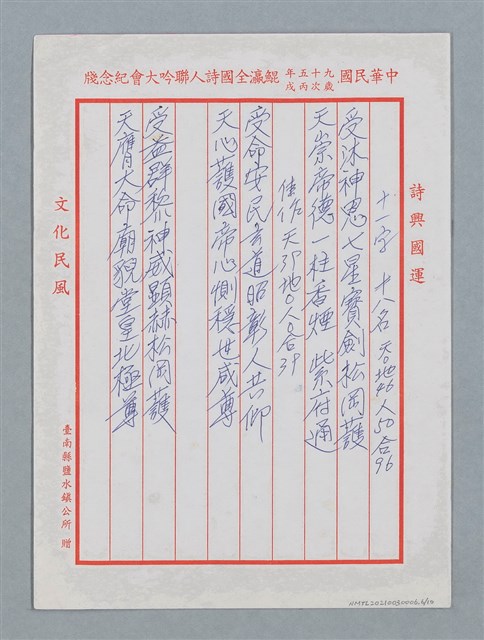 中華民國九十五年歲次丙戌鯤瀛全國詩人聯吟大會紀念牋
詩興國運
十一字 十八名 天0地46人50合96
受沐神恩七星寶劍松岡護
天崇帝德一柱香煙紫府通
佳作 天39地0人0合39
受命安民玄道昭彰人共仰
天心護國帝心惻穩世咸尊
受益群黎神威顯赫松岡護
天膺大命廟貌堂皇北極尊
文化民風
臺南縣鹽水鎮公所 贈
NMTL20210030006.6/10